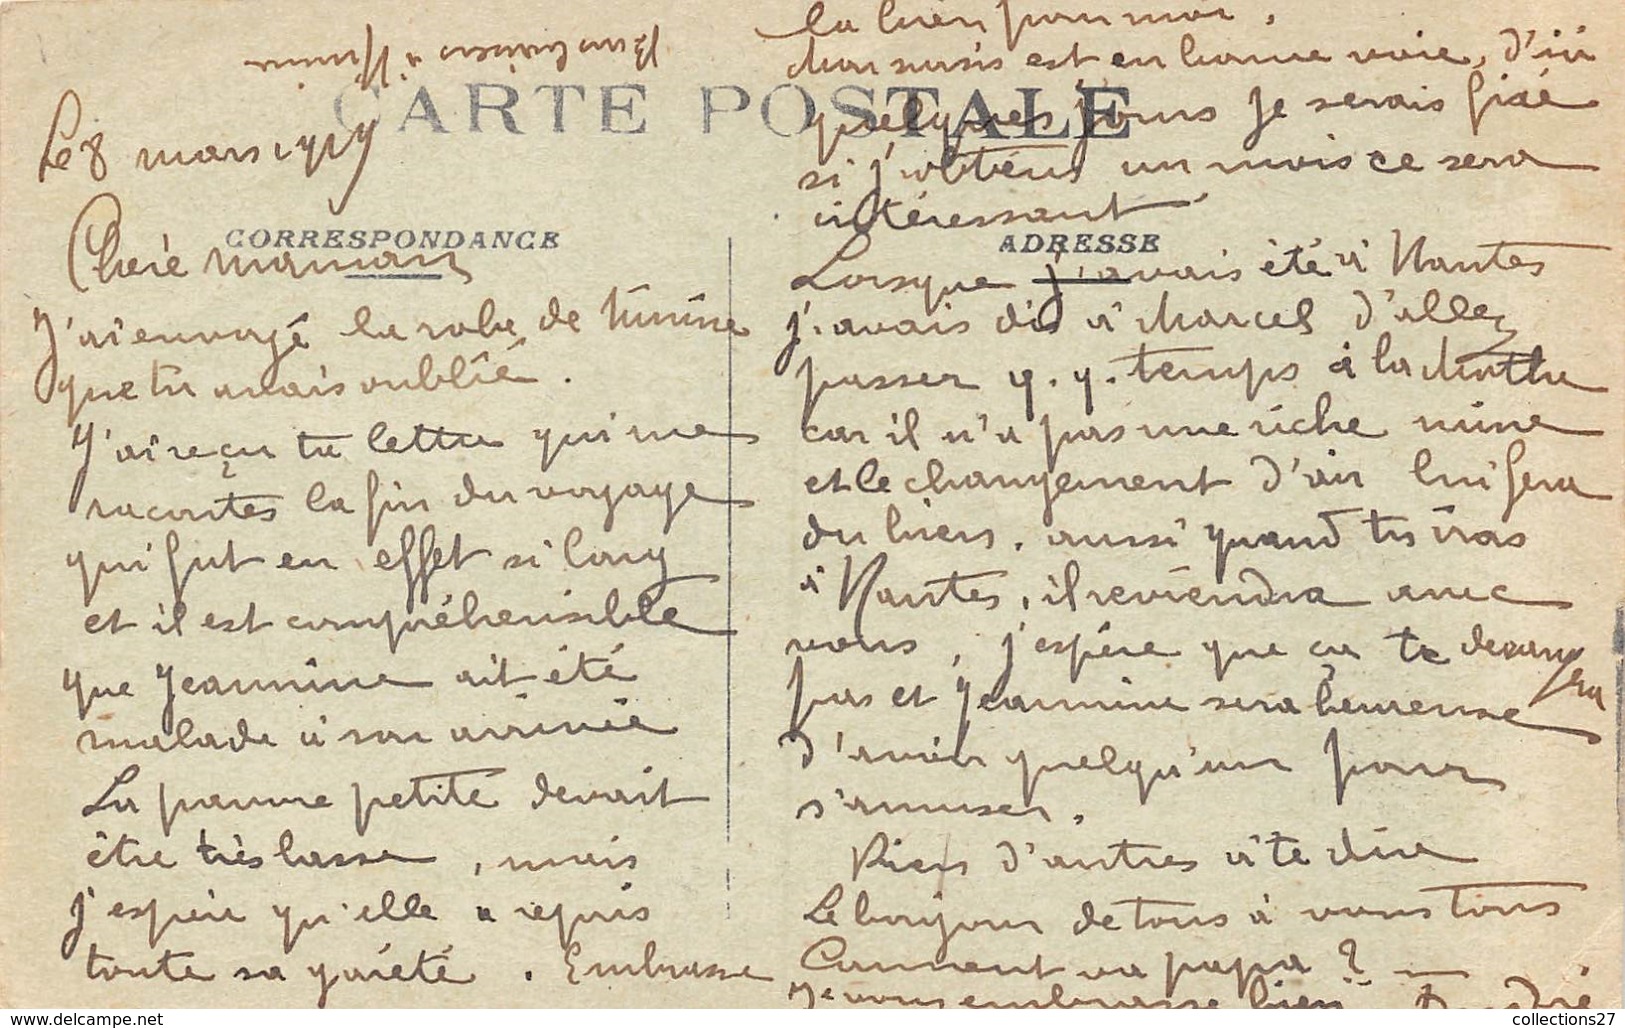 CARTE POSTALE
CORRESPONDANCE
ADRESSE
Le 8 mars 1919
Chère maman
J'ai envoyé la robe de
que tu avais oublié.
J'ai reçu ta lettre qui me
racontes la fin du voyage
qui fut en effet si long
et il est compréhensible
que Jeannine ait été
malade à son arrivée
La pauvre petite devait
être très lasse, mais
j'espère qu'elle a repris
toute sa gaiété. Embrasse
la bien pour moi.
Mon sursis est en bonne voie, d'ici
quelques jours je serais fixé
si j'obtiens un mois ce sera
intéressant
Lorsque j'avais été à Nantes
j'avais dis à Marcel d'allez
passer q.q. temps à la Mothe
car il n'a pas une riche mine
et le changement d'air lui fera
du biens. aussi quand tu iras
à Nantes, il reviendra avec
vous, j'espère que ça te dérangera
pas et Jeannine sera heureuse
d'avoir quelqu'un pour
s'amuser.
Rien d'autres à te dire
Le bonjour de tous à vous tous
Comment va papa ?
Je vous embrasse bien
collections27